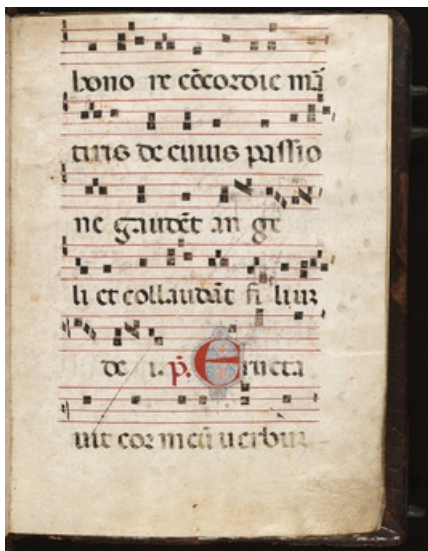 hono re cōcordie mā
tiris de cuius passio
ne gaudēt an ge
li et collaudāt fi liuz
de i. p̄. Eructa
uit cor meū uerbuz